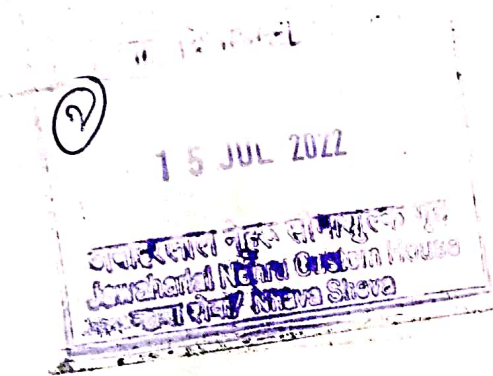 2
15 JUL 2022
जवाहरलाल नेहरू सीमाशुल्क गृह
Jawaharlal Nehru Custom House
न्हावा शेवा/ Nhava Sheva